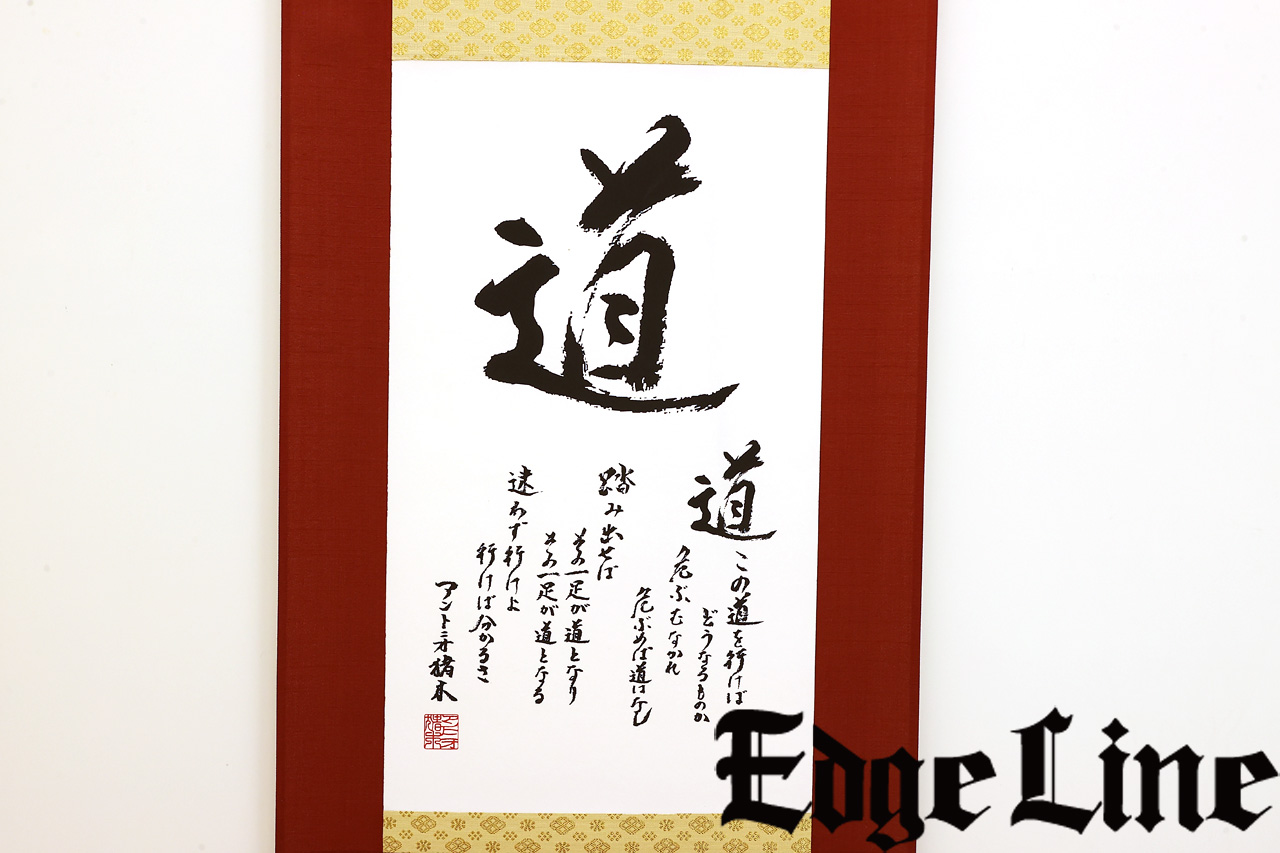 道
道
この道を行けば
どうなるものか
危ぶむなかれ
危ぶめば道はなし
踏み出せば
その一足が道となり
その一足が道となる
迷わず行けよ
行けば分かるさ
アントニオ猪木
Edge Line